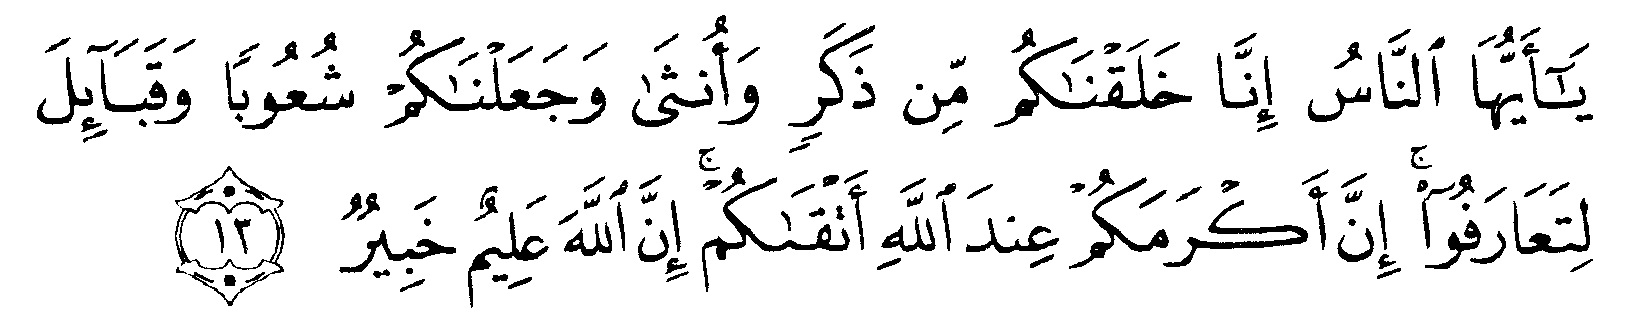 يَـٰٓأَيُّهَا ٱلنَّاسُ إِنَّا خَلَقْنَـٰكُم مِّن ذَكَرٍۢ وَأُنثَىٰ وَجَعَلْنَـٰكُمْ شُعُوبًا وَقَبَآئِلَ
لِتَعَارَفُوٓا۟ ۚ إِنَّ أَكْرَمَكُمْ عِندَ ٱللَّهِ أَتْقَىٰكُمْ ۚ إِنَّ ٱللَّهَ عَلِيمٌ خَبِيرٌۭ ١٣